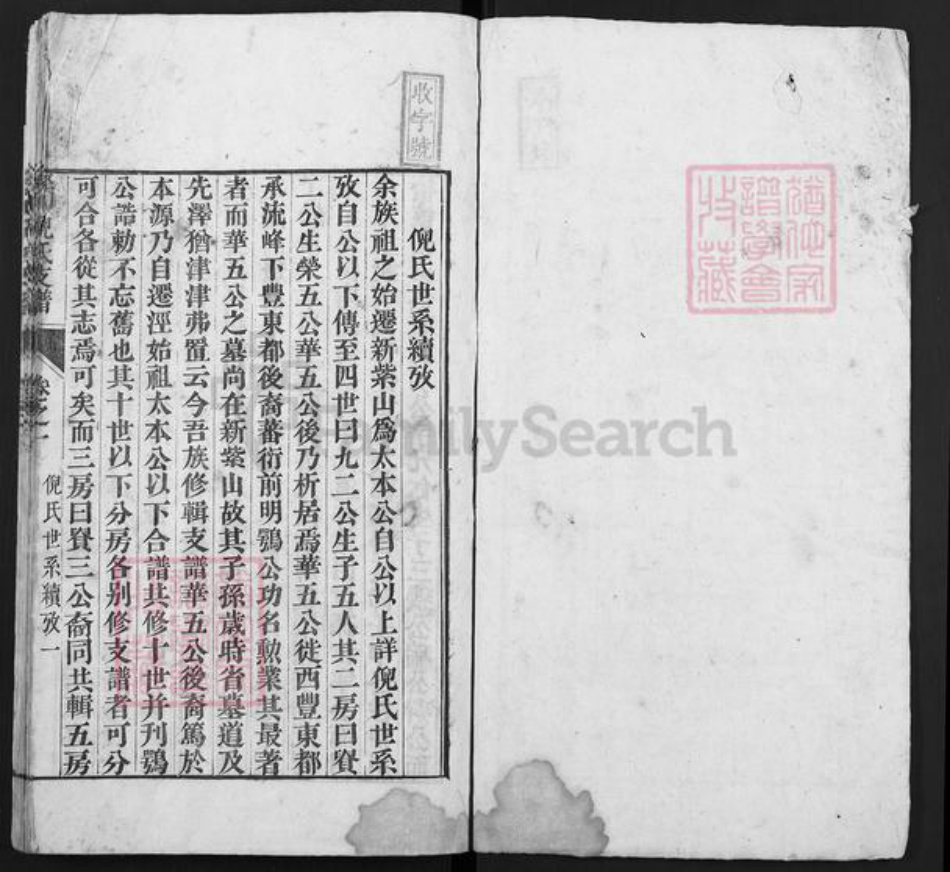 收字號
倪氏世系續攷
余族祖之始遷新紫山爲太本公自公以上詳倪氏世系
攷自公以下傳至四世曰九二公生子五人其二房曰貲
二公生榮五公華五公後乃析居焉華五公徙西豐東都
承流峰下豐東都後裔蕃衍前明鶚公功名勲業其最著
者而華五公之墓尚在新紫山故其子孫歲時省墓道及
先澤猶津津弗置云今吾族修輯支譜華五公後裔篤於
本源乃自遷涇始祖太本公以下合譜共修十世并刊鶚
公誥勅不忘舊也其十世以下分房各别修支譜者可分
可合各從其志焉可矣而三房曰貲三公裔同共輯五房
倪氏支譜
卷之一
倪氏世系續攷一
譜學會
收藏
FamilySearch